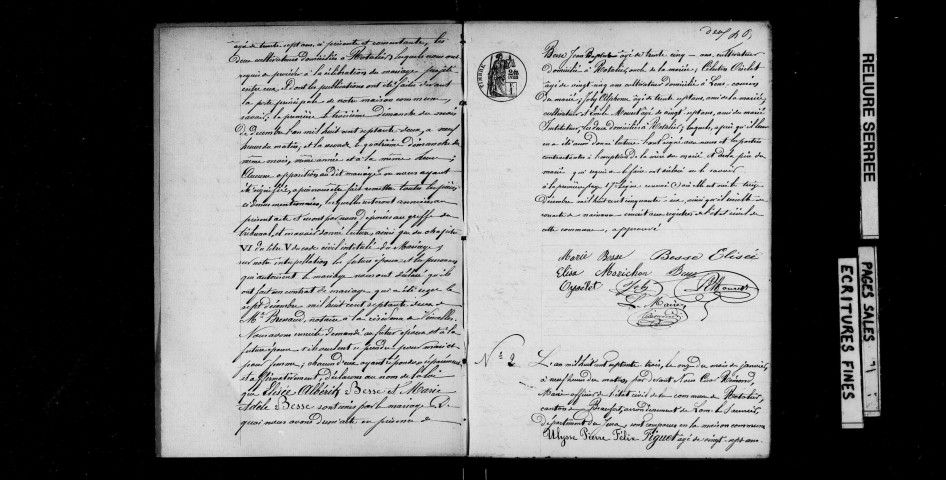 âgé de trente sept ans, ci présente et consentante, les
deux cultivateurs domiciliés à Rotalier, lesquels nous ont
requis de procéder à la célébration du mariage projeté
entre eux, et dont les publications ont été faites devant
la porte principale de notre maison commune
savoir: la première le troisième Dimanche du mois
de décembre l'an mil huit cent septante deux, à neuf
heures du matin; et la seconde le quatrième dimanche du
même mois, même année et à la même heure;
Aucune opposition au dit mariage ne nous ayant
été signifiée, après nous être fait remettre toutes les pièces
ci dessus mentionnées, lesquelles resteront annexées au
présent acte et seront par nous déposées au greffe du
tribunal, et en avoir donné lecture, ainsi que du chapitre
VI du titre V du code civil intitulé du Mariage;
sur notre interpellation les futurs époux et les personnes
qui autorisent le mariage nous ont déclaré qu'ils
ont fait un contrat de mariage qui a été reçu le
sept décembre mil huit cent septante deux
Me Buvand, notaire à la résidence de Vincelles
Nous avons ensuite demandé au futur époux et à la
future épouse s'ils veulent se prendre pour mari et
pour femme; chacun d'eux ayant répondu séparément
et affirmativement, déclarons au nom de la loi
que Elisée Albérik Besse et Marie
Adèle Besse sont unis par le mariage. De
quoi nous avons dressé acte en présence de
deux
Besse Jean Baptiste âgé de trente cinq ans, cultivateur
domicilié à Rotalier, oncle de la mariée; Célestin
âgé de vingt cinq ans cultivateur domicilié à Lons cousin
du marié; Joly Alphonse âgé de trente sept ans, ami de la mariée,
cultivateur et Emile Mouret âgé de vingt sept ans, ami du marié
Instituteur, les deux domiciliés à Rotalier; lesquels, après qu'il leur
en a été aussi donné lecture l'ont signé avec nous et les parties
contractantes à l'exception de la mère du marié et du père du
marié qui requis de le faire ont déclaré ne le savoir
à la première page 17e ligne
Décembre mil huit cent cinquante
cette commune, approuvé
Marie Besse Besse Elisée
Elisa Marichon Besse
Joly Mouret
Le Maire
N° 2
L'an mil huit cent septante trois, le onze du mois de janvier,
à neuf heures du matin, par devant Nous
Maire officier de l'état civil de la commune de Rotalier,
canton de Beaufort, arrondissement de Lons-le-Saunier,
département du Jura, sont comparus en la maison commune
Ulysse Pierre Félix Piguet âgé de vingt sept ans
RELIURE SERREE
PAGES SALES
ECRITURES FINES